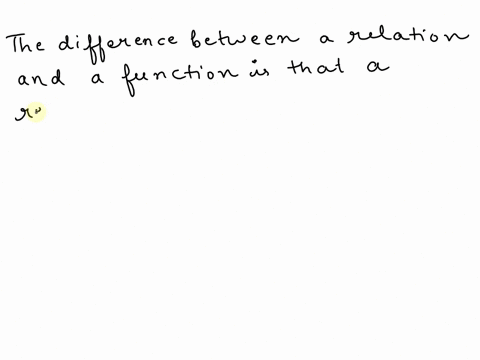 The difference between a relation
and a function is that a